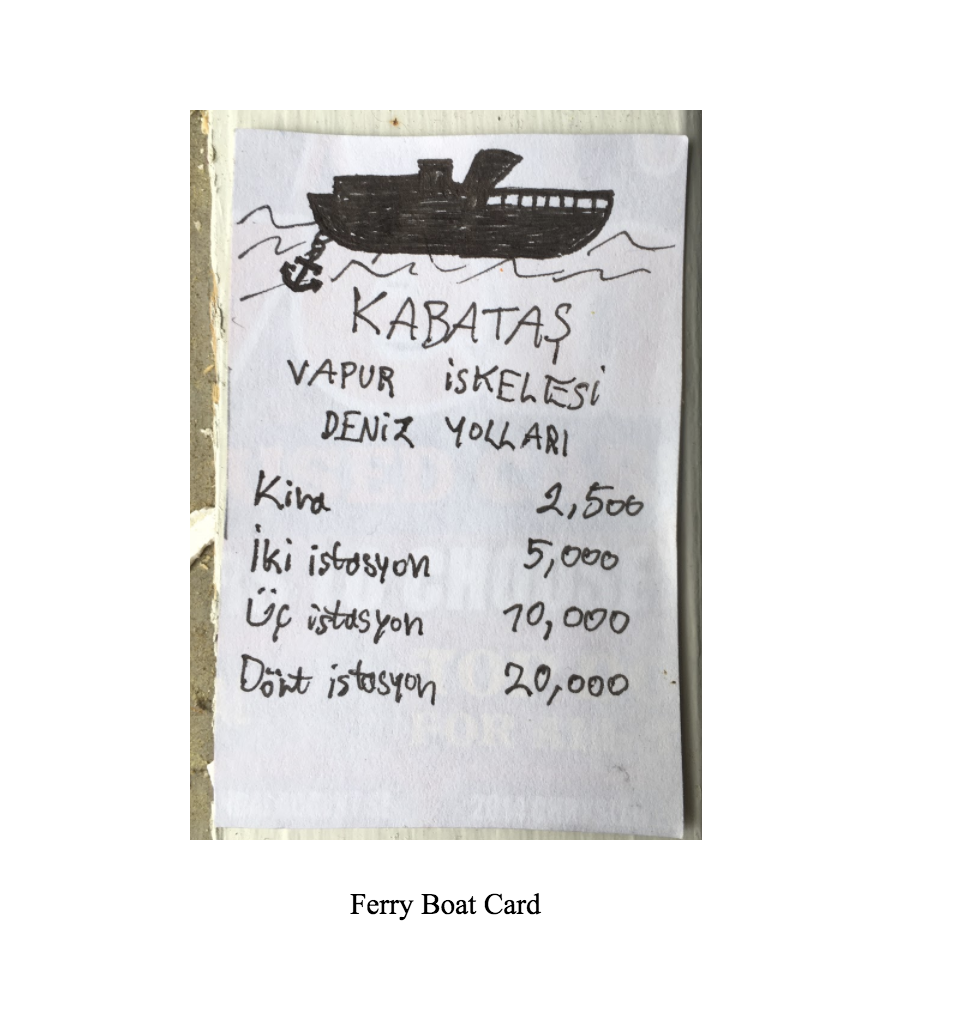 KABATAŞ
VAPUR İSKELESİ
DENİZ YOLLARI
Kira 2,500
İki istasyon 5,000
Üç istasyon 10,000
Dört istasyon 20,000
Ferry Boat Card